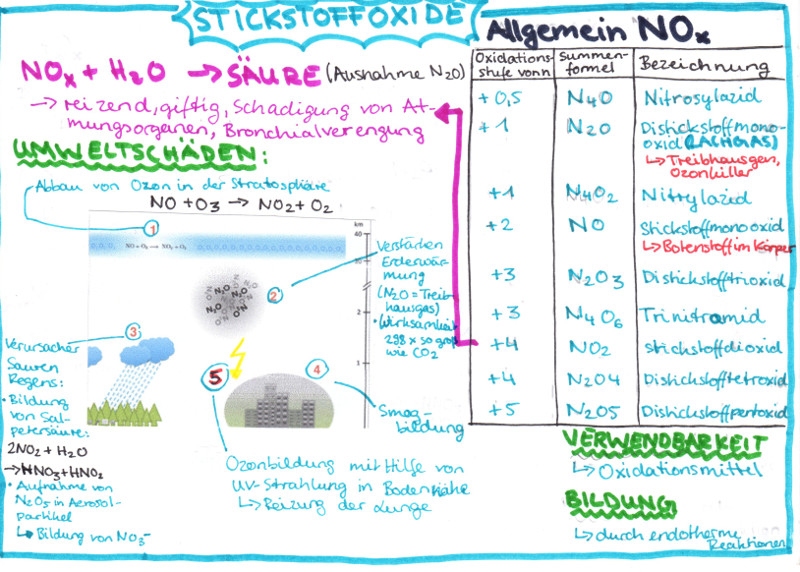 STICKSTOFFOXIDE
NOx + H2O → SÄURE (Ausnahme N2O)
→ reizend, giftig, Schädigung von At-
mungsorganen, Bronchialverengung
UMWELTSCHÄDEN:
Abbau von Ozon in der Stratosphäre
NO + O3 → NO2 + O2
1
NO + O3 → NO2 + O2
km
40
30
2
1
2
N2O N2O N2O N2O
Verstärken
Erderwär-
mung
(N2O = Treib-
hausgas)
• Wirksamkeit
298 x so groß
wie CO2
3
Verursacher
Sauren
Regens:
• Bildung
von Sal-
petersäure:
2NO2 + H2O
→ HNO3 + HNO2
• Aufnahme von
N2O5 in Aerosol-
partikel
↳ Bildung von NO3-
4
Smog-
bildung
5
Ozonbildung mit Hilfe von
UV-Strahlung in Bodennähe
↳ Reizung der Lunge
Allgemein NOx
Oxidations-
stufe von N
Summen-
formel
Bezeichnung
+0,5 N4O Nitrosylazid
+1 N2O Distickstoffmono-
oxid (LACHGAS)
↳ Treibhausgas,
Ozonkiller
+1 N4O2 Nitrylazid
+2 NO Stickstoffmonooxid
↳ Botenstoff im Körper
+3 N2O3 Distickstofftrioxid
+3 N4O6 Trinitramid
+4 NO2 Stickstoffdioxid
+4 N2O4 Distickstofftetroxid
+5 N2O5 Distickstoffpentoxid
VERWENDBARKEIT
↳ Oxidationsmittel
BILDUNG
↳ durch endotherme
Reaktionen